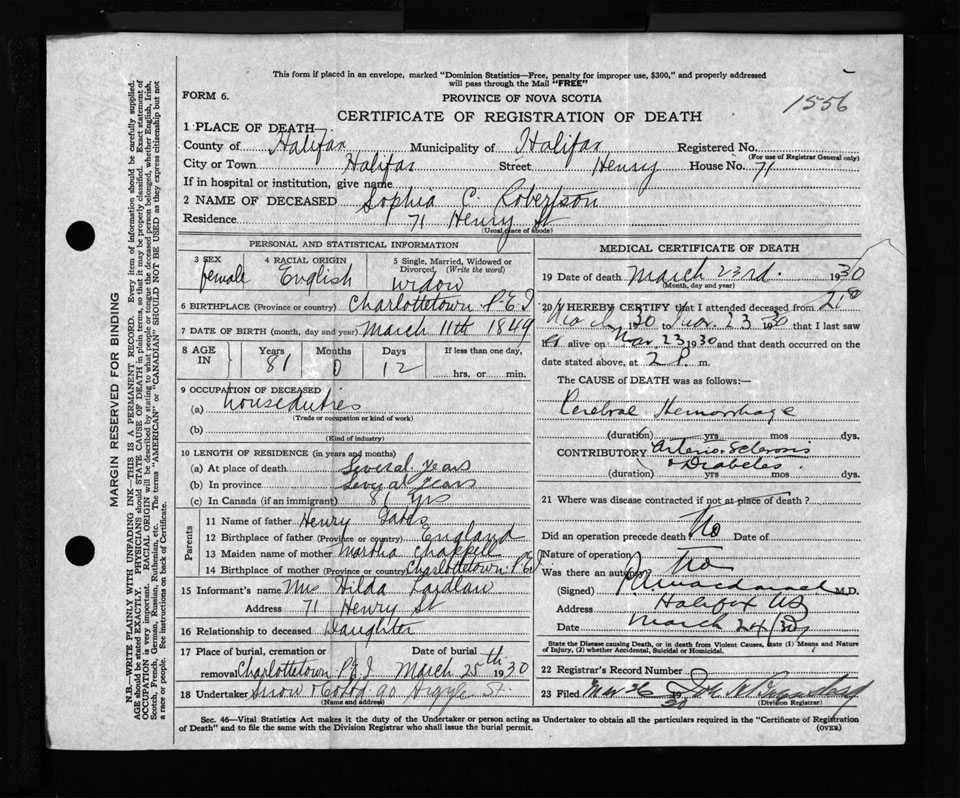 This form if placed in an envelope, marked "Dominion Statistics—Free, penalty for improper use, $300," and properly addressed
will pass through the Mail "FREE"
FORM 6.
PROVINCE OF NOVA SCOTIA
1556
CERTIFICATE OF REGISTRATION OF DEATH
1 PLACE OF DEATH—
County of Halifax Municipality of Halifax Registered No.
(For use of Registrar General only)
City or Town Halifax Street Henry House No. 71
If in hospital or institution, give name
2 NAME OF DECEASED Sophia C. Robertson
Residence 71 Henry St
(Usual place of abode)
PERSONAL AND STATISTICAL INFORMATION
3 SEX female 4 RACIAL ORIGIN English 5 Single, Married, Widowed or Divorced, (Write the word) widow
6 BIRTHPLACE (Province or country) Charlottetown P.E.I
7 DATE OF BIRTH (month, day and year) March 11th 1849
8 AGE IN Years 81 Months 0 Days 12 If less than one day, hrs. or min.
9 OCCUPATION OF DECEASED
(a) house duties
(Trade or occupation or kind of work)
(b)
(Kind of industry)
10 LENGTH OF RESIDENCE (in years and months)
(a) At place of death Several years
(b) In province Several years
(c) In Canada (if an immigrant) 81 yrs
Parents
11 Name of father Henry
12 Birthplace of father (Province or country) England
13 Maiden name of mother Martha Chappell
14 Birthplace of mother (Province or country) Charlottetown P.E.I
15 Informant's name Mrs Hilda Laidlaw
Address 71 Henry St
16 Relationship to deceased Daughter
17 Place of burial, cremation or removal Charlottetown P.E.I Date of burial March 25th 1930
18 Undertaker Snow & Co Ltd 90 Argyle St
(Name and address)
MEDICAL CERTIFICATE OF DEATH
19 Date of death March 23rd. 1930
(Month, day and year)
20 I HEREBY CERTIFY that I attended deceased from 21st
March 1930 to Mar. 23 1930 that I last saw
her alive on Mar. 23 1930 and that death occurred on the
date stated above, at 2 P. m.
The CAUSE OF DEATH was as follows:—
Cerebral Hemorrhage
(duration) yrs mos dys.
CONTRIBUTORY Arterio-Sclerosis
& Diabetes.
(duration) yrs. mos. dys.
21 Where was disease contracted if not at place of death?
Did an operation precede death No Date of
Nature of operation
Was there an autopsy? No
(Signed) M.D.
Address Halifax NS
Date March 24/30
State the Disease causing Death, or in death from Violent Causes, state (1) Means and Nature
of Injury, (2) whether Accidental, Suicidal or Homicidal.
22 Registrars Record Number
23 Filed Mar 26 1930
(Division Registrar)
Sec. 46—Vital Statistics Act makes it the duty of the Undertaker or person acting as Undertaker to obtain all the particulars required in the "Certificate of Registration
of Death" and to file the same with the Division Registrar who shall issue the burial permit.
(OVER)
MARGIN RESERVED FOR BINDING
N.B.—WRITE PLAINLY WITH UNFADING INK—THIS IS A PERMANENT RECORD. Every item of information should be carefully supplied.
AGE should be stated EXACTLY. PHYSICIANS should STATE CAUSE OF DEATH in plain terms, so that it may be properly classified. Exact statement of
OCCUPATION is very important. RACIAL ORIGIN will be described by stating to what people or tongue the deceased person belonged, whether English, Irish,
Scotch, French, German, Russian, Ruthenian, etc. The terms "AMERICAN" or "CANADIAN" SHOULD NOT BE USED as they express citizenship but not
a race or people. See instructions on back of Certificate.